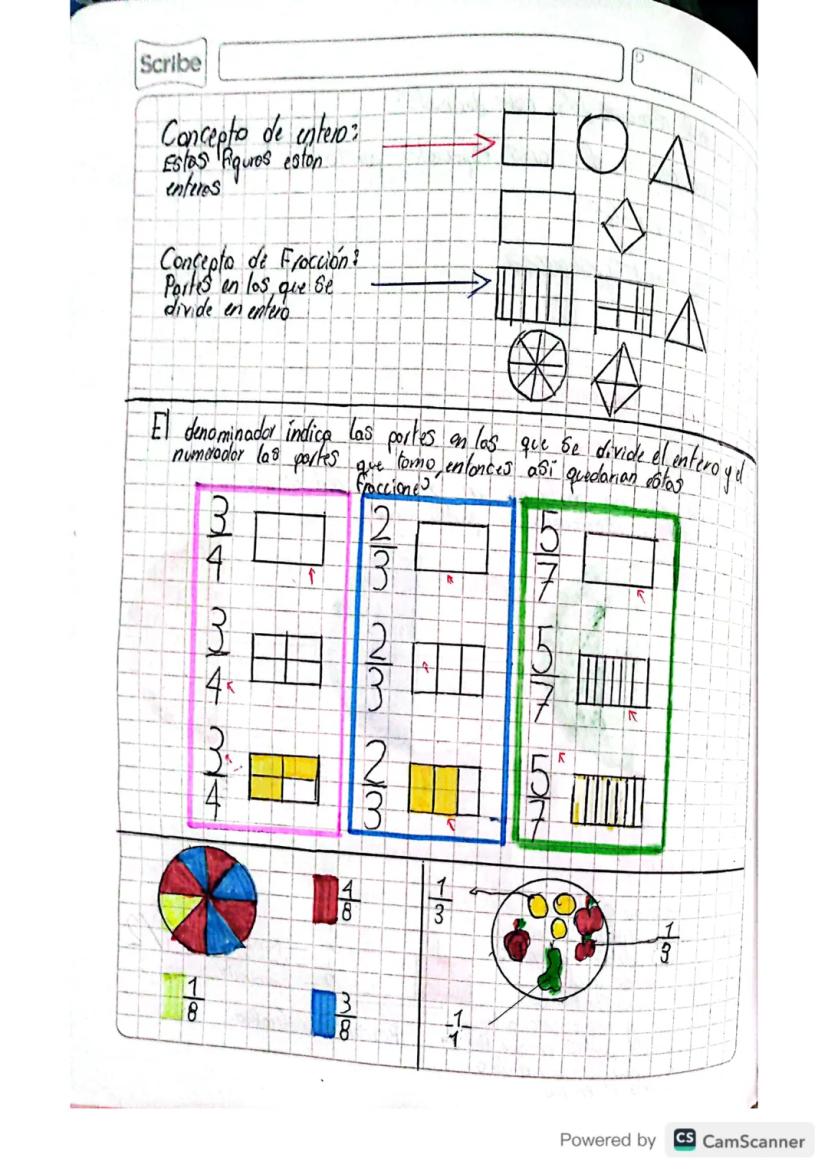 Scribe
Concepto de entero:
Estas figuras estan
enteras
Concepto de Fracción:
Partes en las que se
divide en entero
El denominador indica las partes en las que se divide el entero y el
numerador las partes que tomo, entonces asi quedarian estas
fracciones
3/4
2/3
5/7
3/4
2/3
5/7
3/4
2/3
5/7
4/8
1/3
1/3
1/8
3/8
1/1
Powered by CS CamScanner